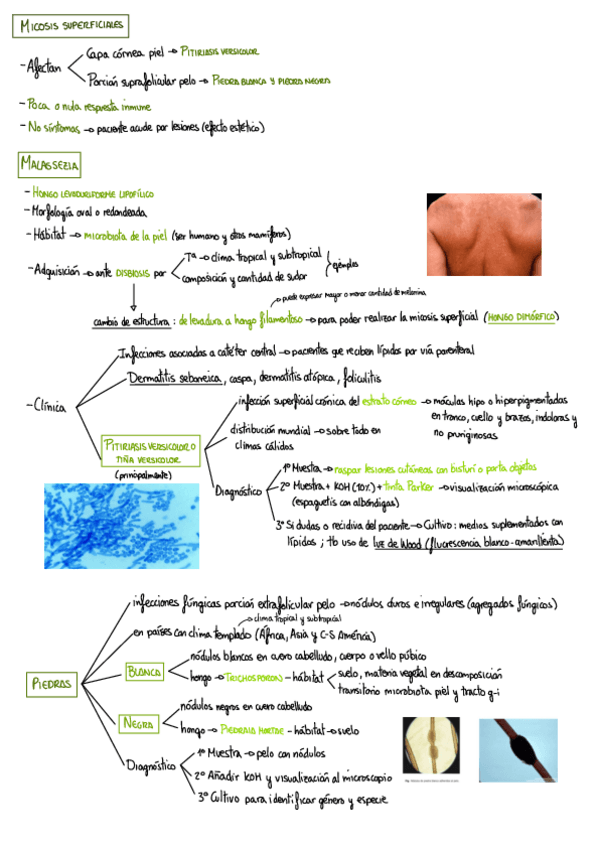 MICOSIS SUPERFICIALES
- Afectan
Capa córnea piel → PITIRIASIS VERSICOLOR
Porción suprafolicular pelo → PIEDRA BLANCA Y PIEDRA NEGRA
- Poca o nula respuesta inmune
- No síntomas → paciente acude por lesiones (efecto estético)
MALASSEZIA
- HONGO LEVADURIFORME LIPOFÍLICO
- Morfología oval o redondeada
- Hábitat → microbiota de la piel (ser humano y otros mamíferos)
- Adquisición → ante DISBIOSIS por
Tª → clima tropical y subtropical
composición y cantidad de sudor
ejemplos
puede expresar mayor o menor cantidad de melanina
cambio de estructura: de levadura a hongo filamentoso → para poder realizar la micosis superficial (HONGO DIMÓRFICO)
- Clínica
Infecciones asociadas a catéter central → pacientes que reciben lípidos por vía parenteral
Dermatitis seborreica, caspa, dermatitis atópica, foliculitis
PITIRIASIS VERSICOLOR O
TIÑA VERSICOLOR
(principalmente)
infección superficial crónica del estrato córneo → máculas hipo o hiperpigmentadas
en tronco, cuello y brazos, indoloras y
no pruriginosas
distribución mundial → sobre todo en
climas cálidos
Diagnóstico
1º Muestra → raspar lesiones cutáneas con bisturí o porta objetos
2º Muestra + KOH (10%) + tinta Parker → visualización microscópica
(espaguetis con albóndigas)
3º Si dudas o recidiva del paciente → Cultivo: medios suplementados con
lípidos; tb uso de luz de Wood (fluorescencia blanco-amarillenta)
PIEDRAS
infecciones fúngicas porción extrafolicular pelo → nódulos duros e irregulares (agregados fúngicos)
clima tropical y subtropical
en países con clima templado (África, Asia y C-S América)
BLANCA
nódulos blancos en cuero cabelludo, cuerpo o vello púbico
hongo → TRICHOSPORON - hábitat
suelo, materia vegetal en descomposición
transitorio microbiota piel y tracto g-i
NEGRA
nódulos negros en cuero cabelludo
hongo → PIEDRAIA HORTAE - hábitat → suelo
Diagnóstico
1º Muestra → pelo con nódulos
2º Añadir KOH y visualización al microscopio
3º Cultivo para identificar género y especie